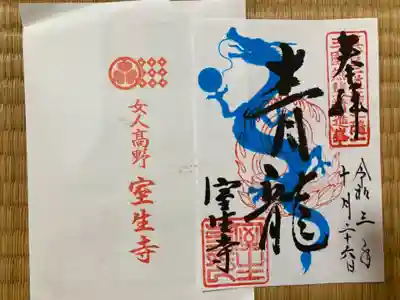 奉拝
令和三年
十月二十六日
青龍
室生寺
女人高野
室生寺